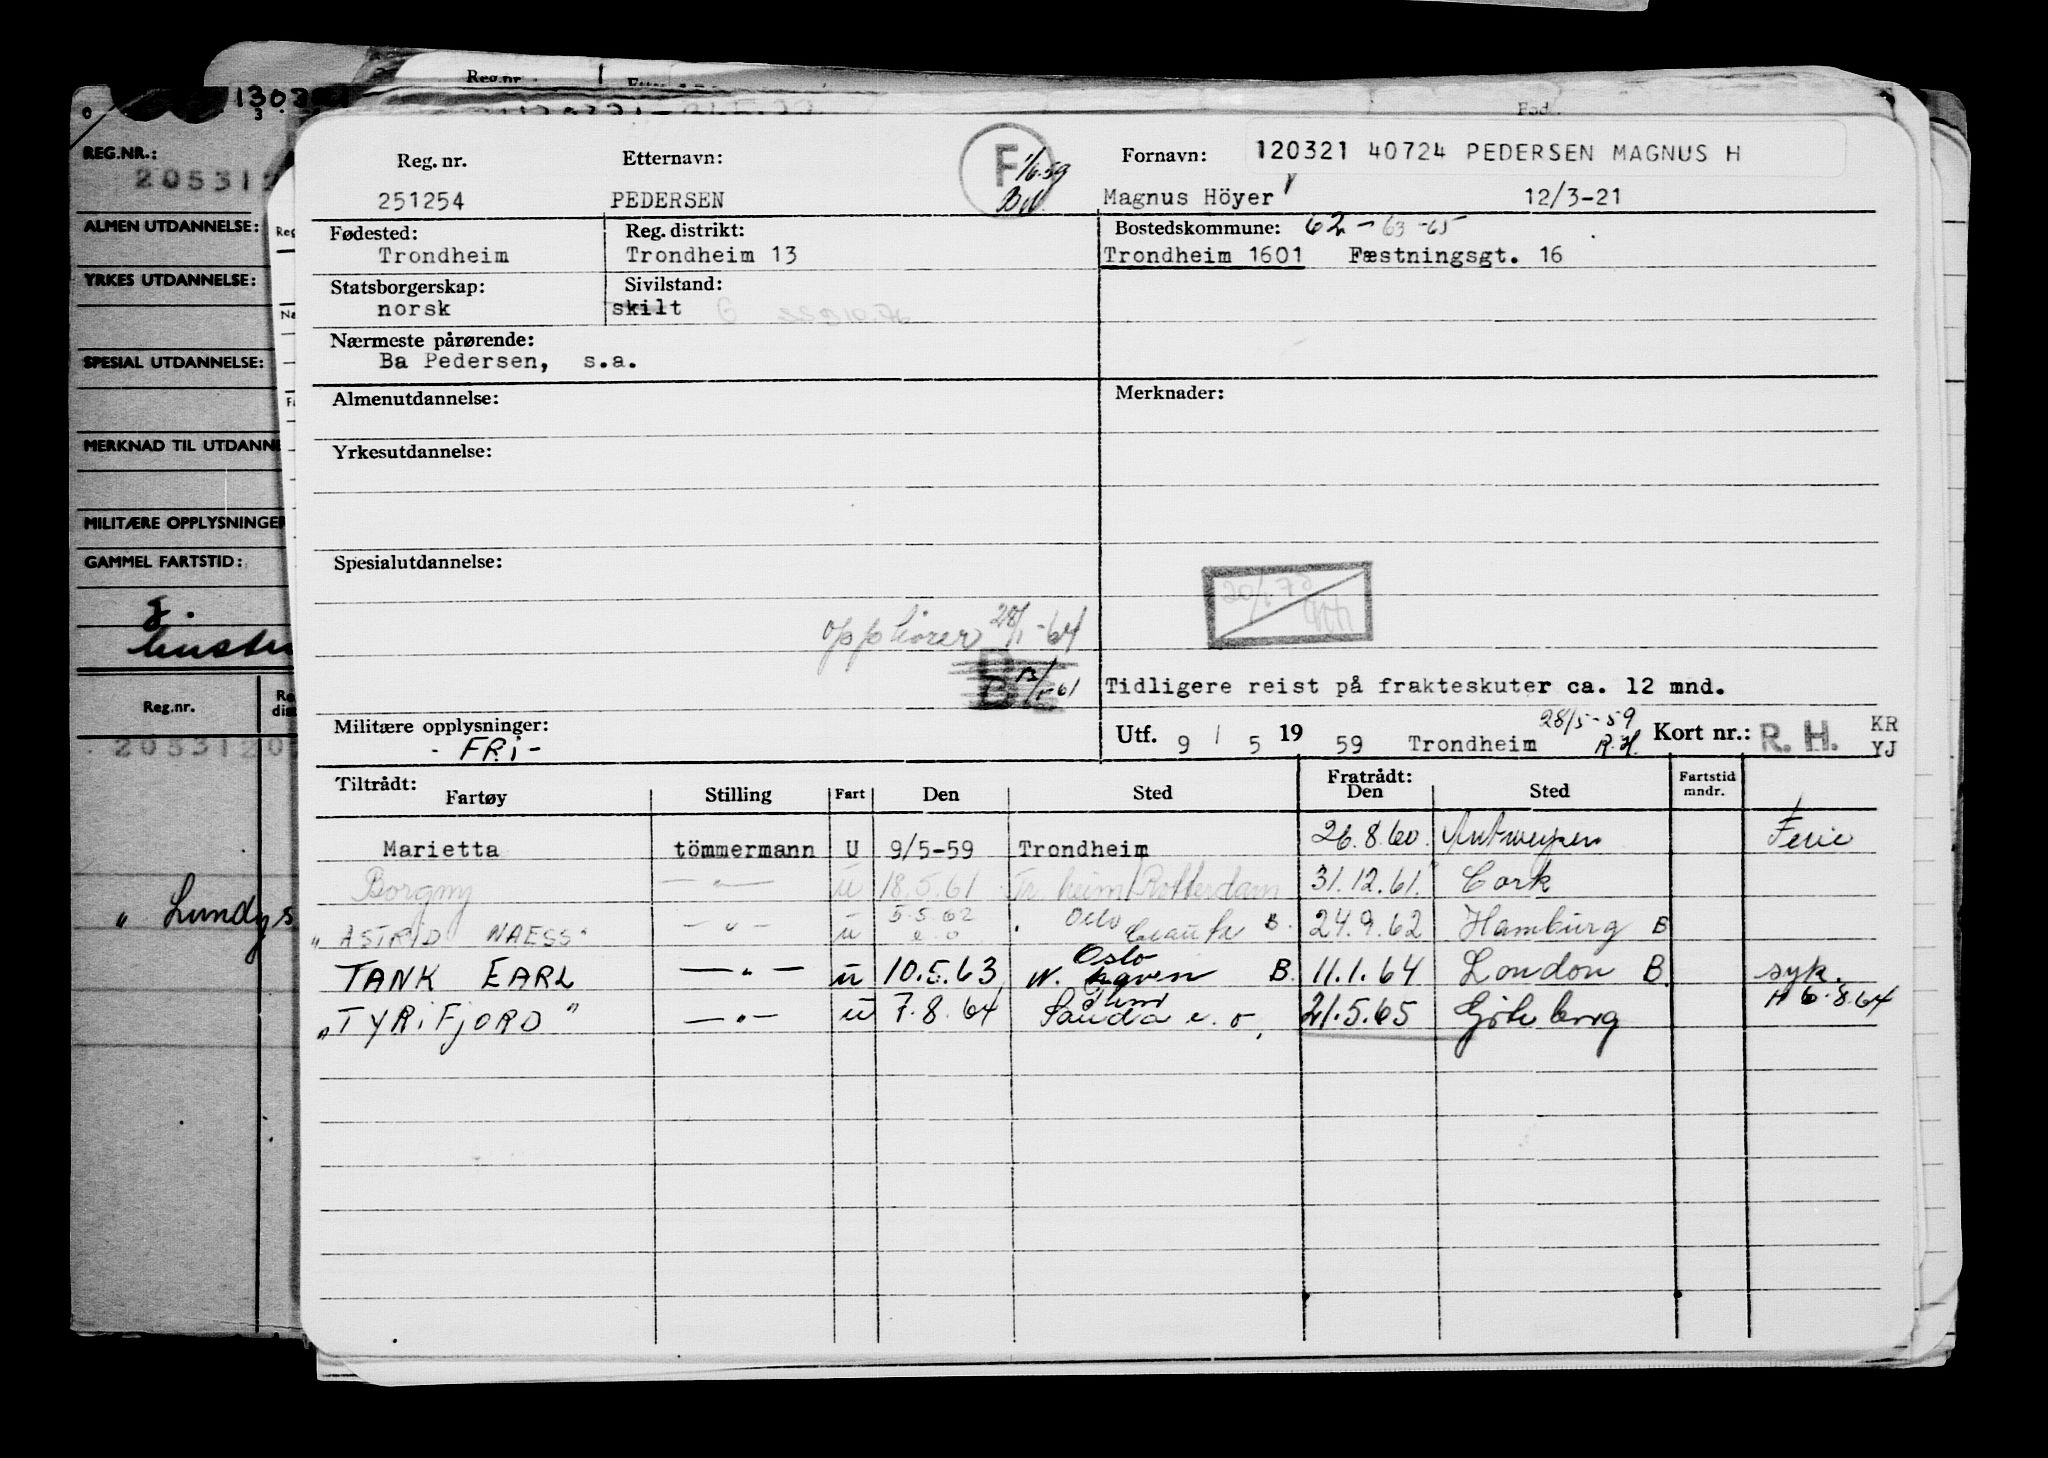 Reg.nr.
130321
REG.NR.:
ALMEN UTDANNELSE:
YRKES UTDANNELSE:
SPESIAL UTDANNELSE:
MERKNAD TIL UTDANNE
MILITÆRE OPPLYSNINGER
GAMMEL FARTSTID:
Reg.nr.
" Lundys
Reg. nr. Etternavn: F 1/6.59 Fornavn: 120321 40724 PEDERSEN MAGNUS H
251254 PEDERSEN Magnus Höyer 12/3-21
Fødested: Reg. distrikt: Bostedskommune: 62-63-65
Trondheim Trondheim 13 Trondheim 1601 Fæstningsgt. 16
Statsborgerskap: Sivilstand:
norsk skilt G
Nærmeste pårørende:
Ba Pedersen, s.a.
Almenutdannelse: Merknader:
Yrkesutdannelse:
Spesialutdannelse:
opphører 28/1-64
Tidligere reist på frakteskuter ca. 12 mnd.
Militære opplysninger: Utf. 9 / 5 19 59 Trondheim 28/5-59 R.H. Kort nr.: R. H. KR YJ
- FRi -
Tiltrådt: Fratrådt: Fartstid
Fartøy Stilling Fart Den Sted Den Sted mndr.
Marietta tömmermann U 9/5-59 Trondheim 26.8.60. Antwerpen Ferie
Borgny —"— u 18.5.61 Tr.heim/Rotterdam 31.12.61. Cork
"ASTRID NAESS" -"- u 5.5.62 e.o Oslo B. 24.9.62 Hamburg B
TANK EARL —"— u 10.5.63 Oslo W. haven B. 11.1.64 London B. syk.
"TYRiFjORD" —"— u 7.8.64 Sauda e.o, 21.5.65 Göteborg H 6.8.64